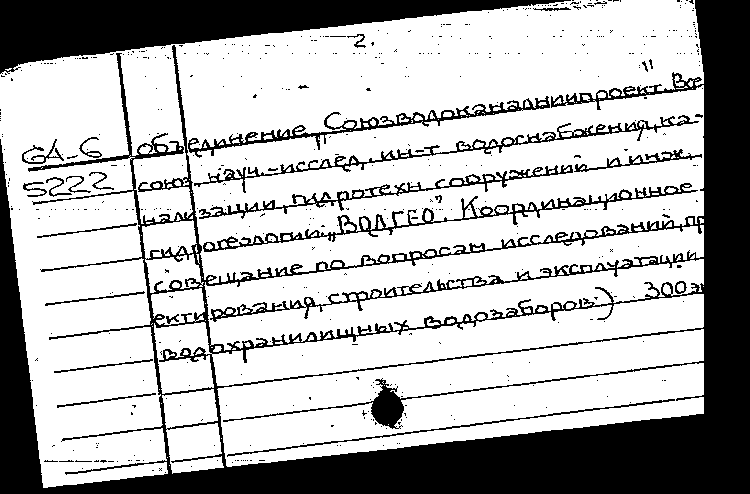 2.
объединение „Союзводоканалниипроект". Все
GA-6 союз. науч.-исслед. ин-т водоснабжения, ка-
5222 нализации, гидротехн. сооружений и инж.
гидрогеологии „ВОДГЕО". Координационное
совещание по вопросам исследований, пр
ектирования, строительства и эксплуатации
водохранилищных водозаборов.) 300 э